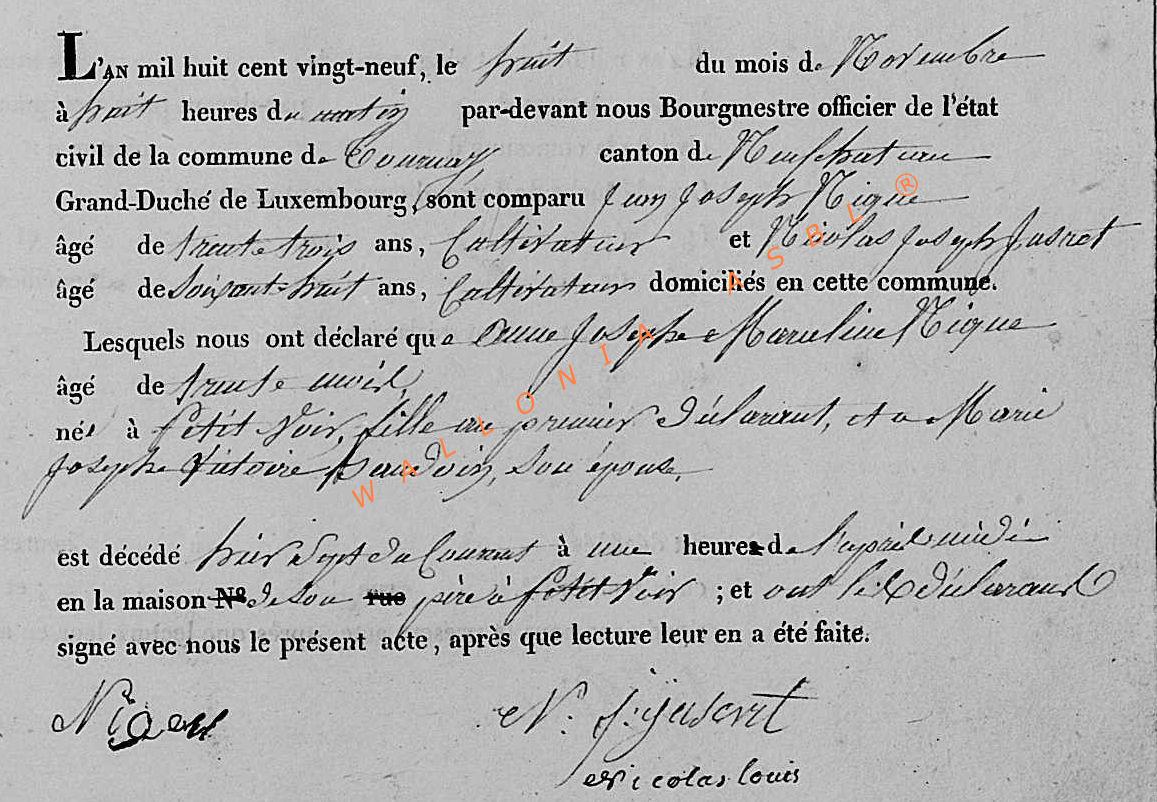 L'AN mil huit cent vingt-neuf, le huit du mois de Novembre
à huit heures du matin par-devant nous Bourgmestre officier de l'état
civil de la commune de Tournay canton de Neufchateau
Grand-Duché de Luxembourg, sont comparu Jean Joseph Nique
âgé de trente trois ans, Cultivateur et Nicolas Joseph
âgé de Soixant-huit ans, Cultivateur domiciliés en cette commune.
Lesquels nous ont déclaré que Anne Josephe Marceline Nique
âgé de trente mois,
née à Petit Voir, fille au premier Déclarant, et a Marie
Josephe Victoire Baudoin, son épouse,
est décédé hier Sept du Courant à une heure de l'après midi
en la maison No. de son rue père à Petit Voir ; et ont les Déclarants
signé avec nous le présent acte, après que lecture leur en a été faite.
N. J:
Nicolas louis
WALLONIA ASBL ®